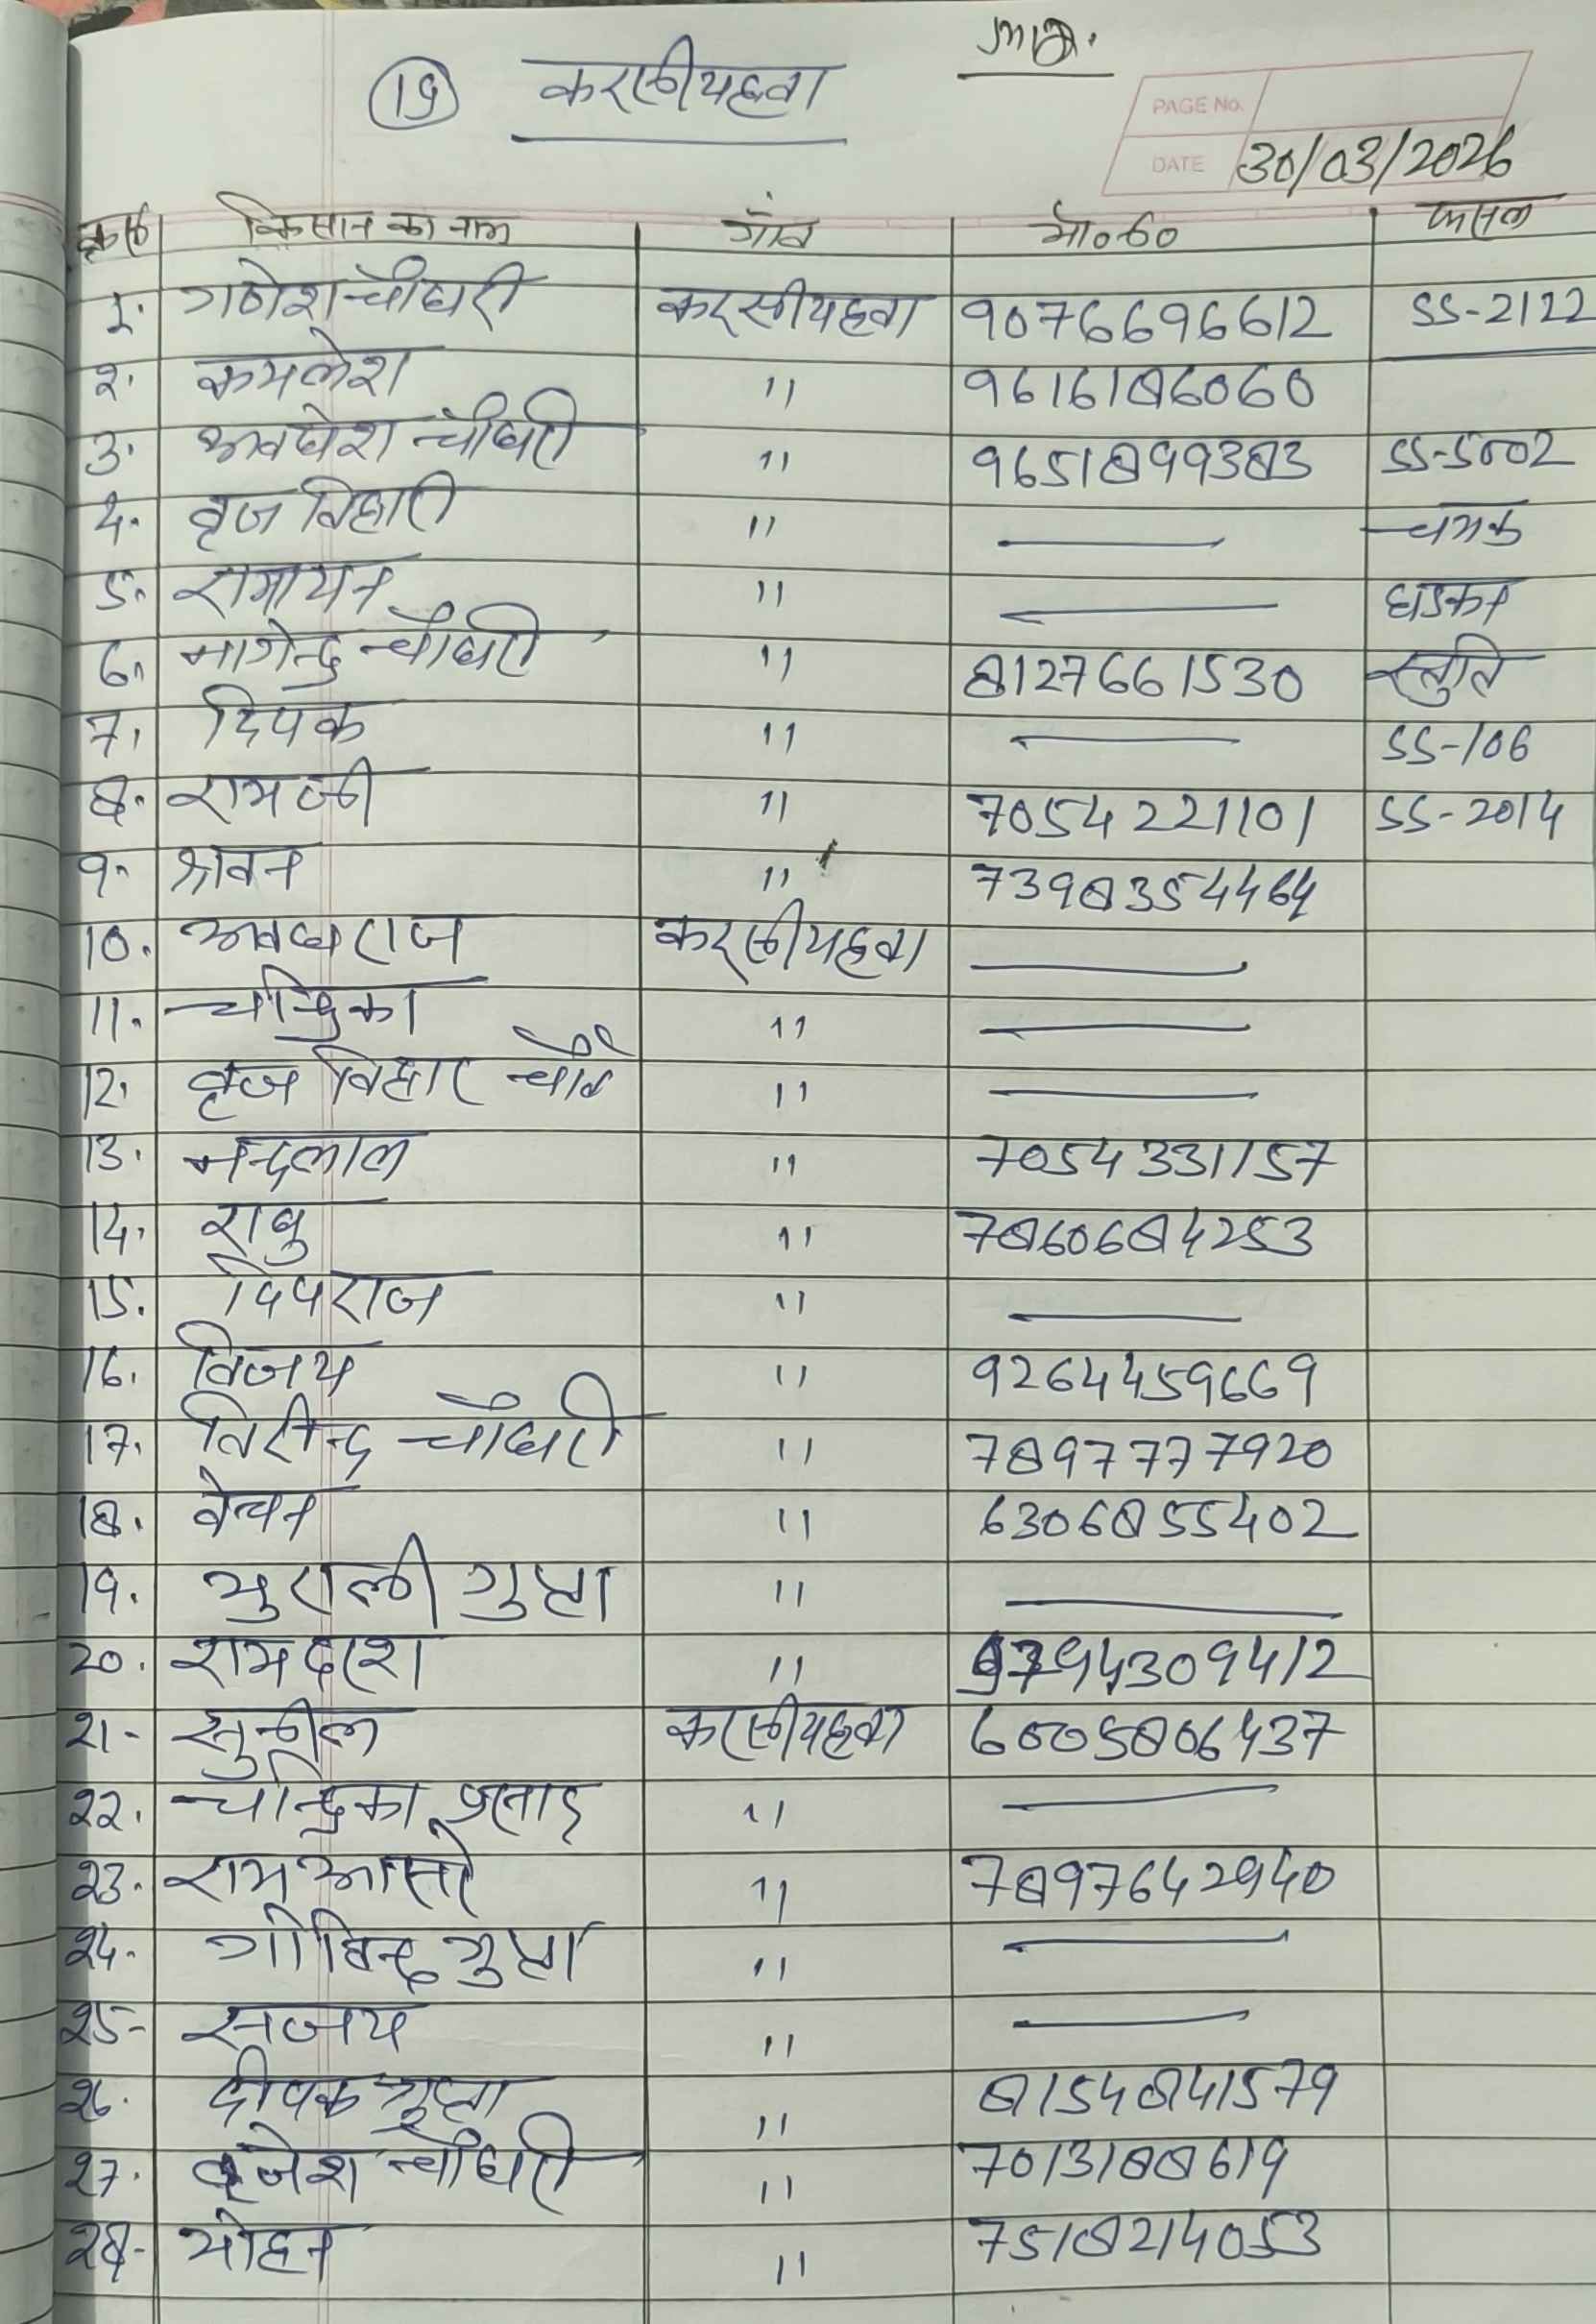 15 करसीयहवा
PAGE No.
DATE 30/03/2026
क्र०सं० किसान का नाम गाँव मो०न० फसल
1. गणेश चौधरी करसीयहवा 9076696612 SS-2122
2. कमलेश " 9616186060
3. अवधेश चौधरी " 9651899383 SS-5002
4. वृज विहारी " — चमक
5. रामायन " — धडकन
6. नागेन्द्र चौधरी " 8127661530 स्तुति
7. दिपक " — SS-106
8. रामजी " 7054221101 SS-2014
9. श्रावन " 7398354464
10. अवधराज करसीयहवा —
11. चन्द्रिका " —
12. वृज विहार चौ० " —
13. नन्दलाल " 7054331157
14. राधु " 7860684253
15. दिपराज " —
16. विजय " 9264459669
17. विरेन्द्र चौधरी " 7897777920
18. वेचन " 6306855402
19. मुराली गुप्ता " —
20. रामदाश " 9794309412
21- सुनील करसीयहवा 6005806437
22. चन्द्रिका प्रसाद " —
23. राम आसरे " 7897642940
24- गोविन्द गुप्ता " —
25- सजय " —
26. दीपक गुप्ता " 8154841579
27. बृजेश चौधरी " 7013188619
28- मोहन " 7518214053